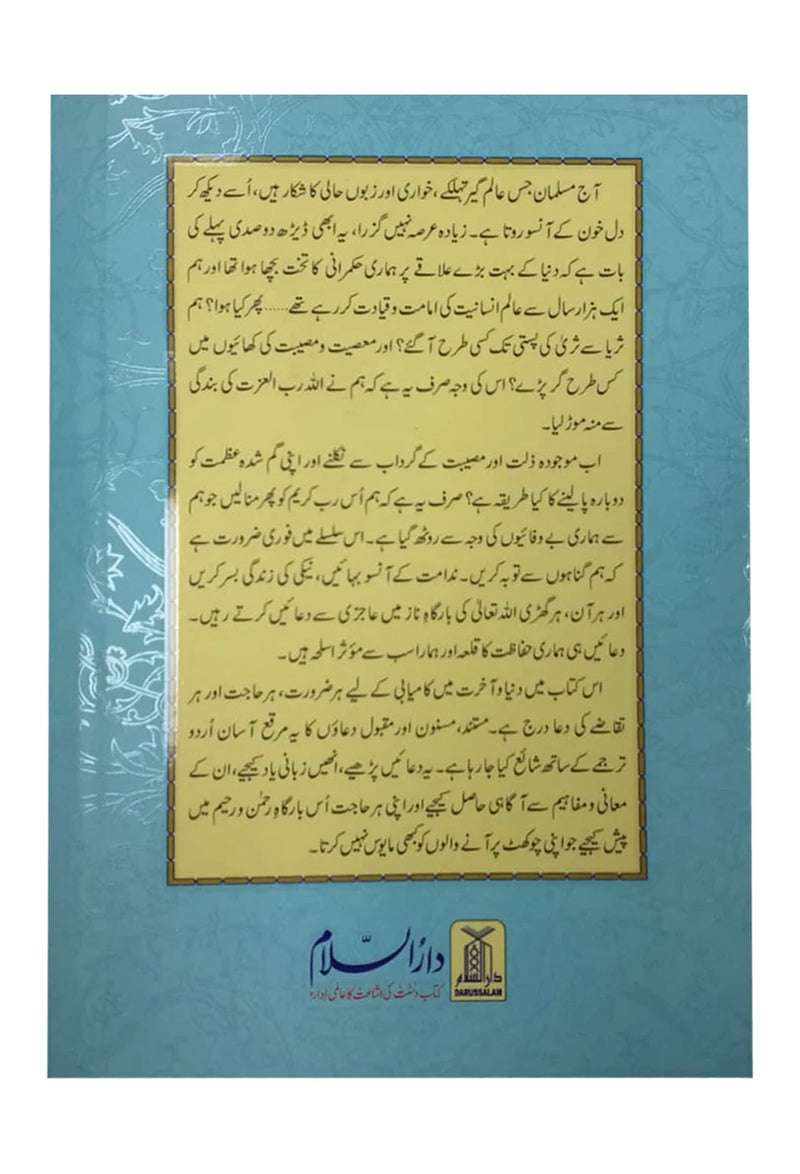 آج مسلمان جس عالم گیر تہلکے، خواری اور زبوں حالی کا شکار ہیں، اُسے دیکھ کر
دل خون کے آنسو روتا ہے۔ زیادہ عرصہ نہیں گزرا، یہ ابھی ڈیڑھ دو صدی پہلے کی
بات ہے کہ دنیا کے بہت بڑے علاقے پر ہماری حکمرانی کا تخت بچھا ہوا تھا اور ہم
ایک ہزار سال سے عالم انسانیت کی امامت و قیادت کر رہے تھے...... پھر کیا ہوا؟ ہم
ثریا سے ثریٰ کی پستی تک کسی طرح آ گئے؟ اور معصیت و مصیبت کی کھائیوں میں
کس طرح گر پڑے؟ اس کی وجہ صرف یہ ہے کہ ہم نے اللہ رب العزت کی بندگی
سے منہ موڑ لیا۔
اب موجودہ ذلت اور مصیبت کے گرداب سے نکلنے اور اپنی گم شدہ عظمت کو
دوبارہ پا لینے کا کیا طریقہ ہے؟ صرف یہ ہے کہ ہم اُس رب کریم کو پھر منا لیں جو ہم
سے ہماری بے وفائیوں کی وجہ سے روٹھ گیا ہے۔ اس سلسلے میں فوری ضرورت ہے
کہ ہم گناہوں سے توبہ کریں۔ ندامت کے آنسو بہائیں، نیکی کی زندگی بسر کریں
اور ہر آن، ہر گھڑی اللہ تعالیٰ کی بارگاہِ ناز میں عاجزی سے دعائیں کرتے رہیں۔
دعائیں ہی ہماری حفاظت کا قلعہ اور ہمارا سب سے مؤثر اسلحہ ہیں۔
اس کتاب میں دنیا و آخرت میں کامیابی کے لیے ہر ضرورت، ہر حاجت اور ہر
تقاضے کی دعا درج ہے۔ مستند، مسنون اور مقبول دعاؤں کا یہ مرقع آسان اُردو
ترجمے کے ساتھ شائع کیا جا رہا ہے۔ یہ دعائیں پڑھیے، انھیں زبانی یاد کیجیے، ان کے
معانی و مفاہیم سے آگاہی حاصل کیجیے اور اپنی ہر حاجت اُس بارگاہِ رحمٰن و رحیم میں
پیش کیجیے جو اپنی چوکھٹ پر آنے والوں کو کبھی مایوس نہیں کرتا۔
دارُالسلّام
کتاب و سنت کی اشاعت کا عالمی ادارہ
دارالسلام
DARUSSALAM